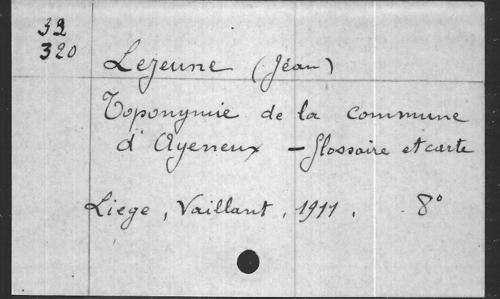 32
320
Lejeune (Jean)
Toponymie de la commune
d'Ayeneux - Glossaire et carte
Liege, Vaillant, 1911. 8°